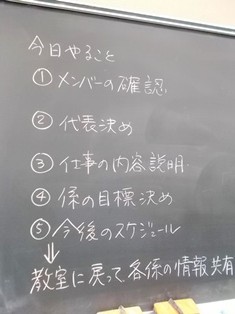 今日やること
① メンバーの確認
② 代表決め
③ 仕事の内容説明
④ 係の目標決め
⑤ 今後のスケジュール
⇓
教室に戻って各係の情報共有